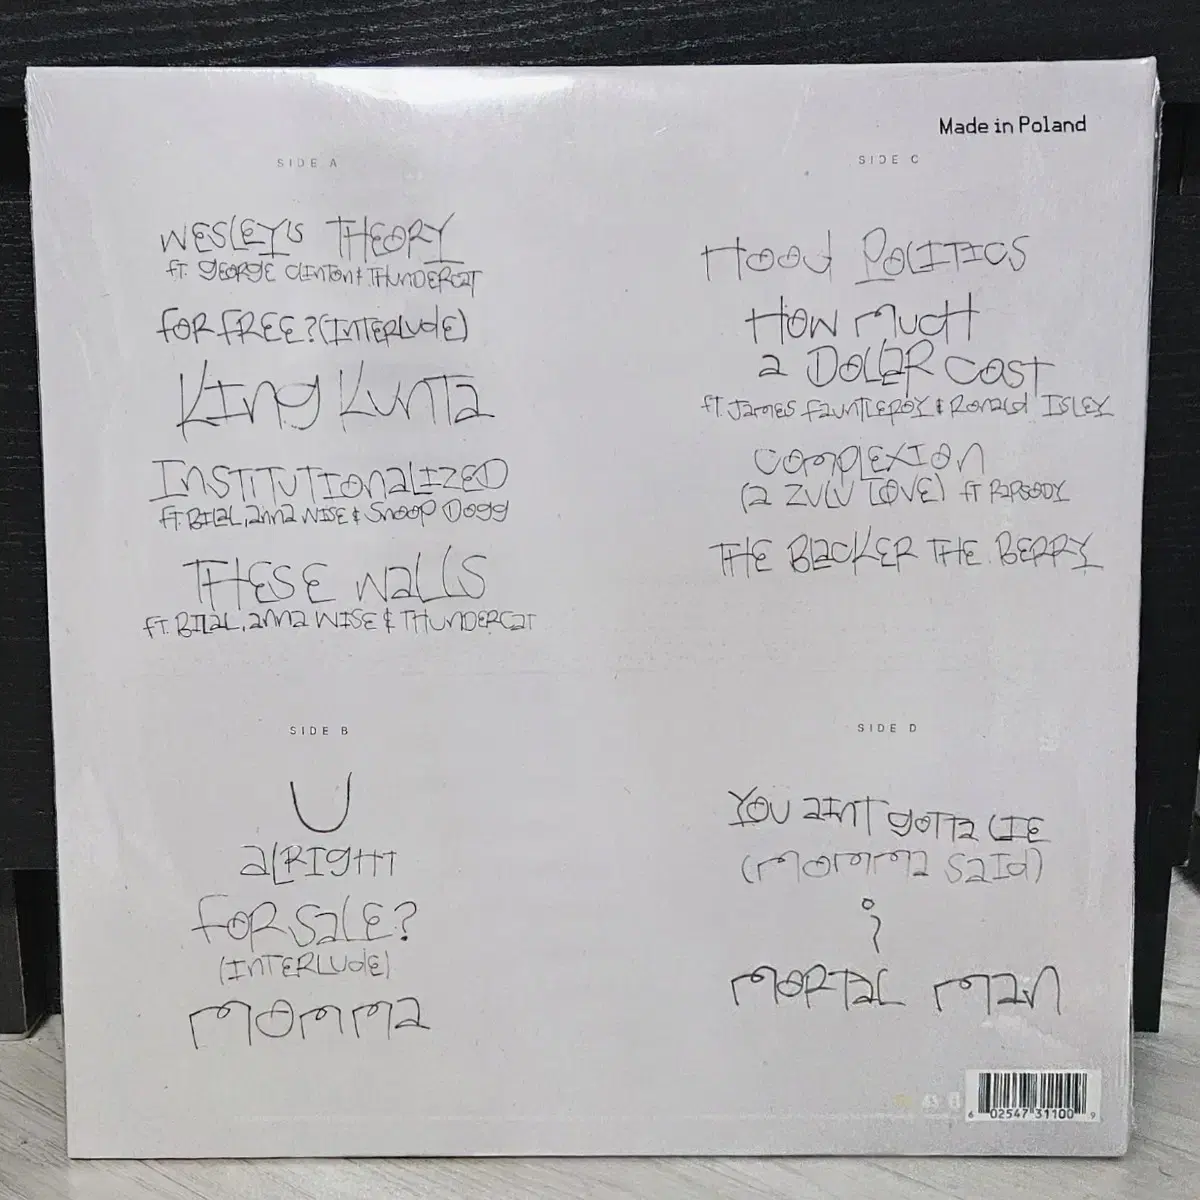 Made in Poland
SIDE A
WESLEY'S THEORY
ft. GEORGE CLINTON & THUNDERCAT
FOR FREE? (INTERLUDE)
KING KUNTA
INSTITUTIONALIZED
ft. BILAL, ANNA WISE & SNOOP DOGG
THESE WALLS
ft. BILAL, ANNA WISE & THUNDERCAT
SIDE B
U
ALRIGHT
FOR SALE?
(INTERLUDE)
MOMMA
SIDE C
HOOD POLITICS
HOW MUCH
A DOLLAR COST
ft. JAMES FAUNTLEROY & RONALD ISLEY
COMPLEXION
(A ZULU LOVE) ft RAPSODY
THE BLACKER THE BERRY
SIDE D
YOU AINT GOTTA LIE
(MOMMA SAID)
i
MORTAL MAN
6 02547 31100 9